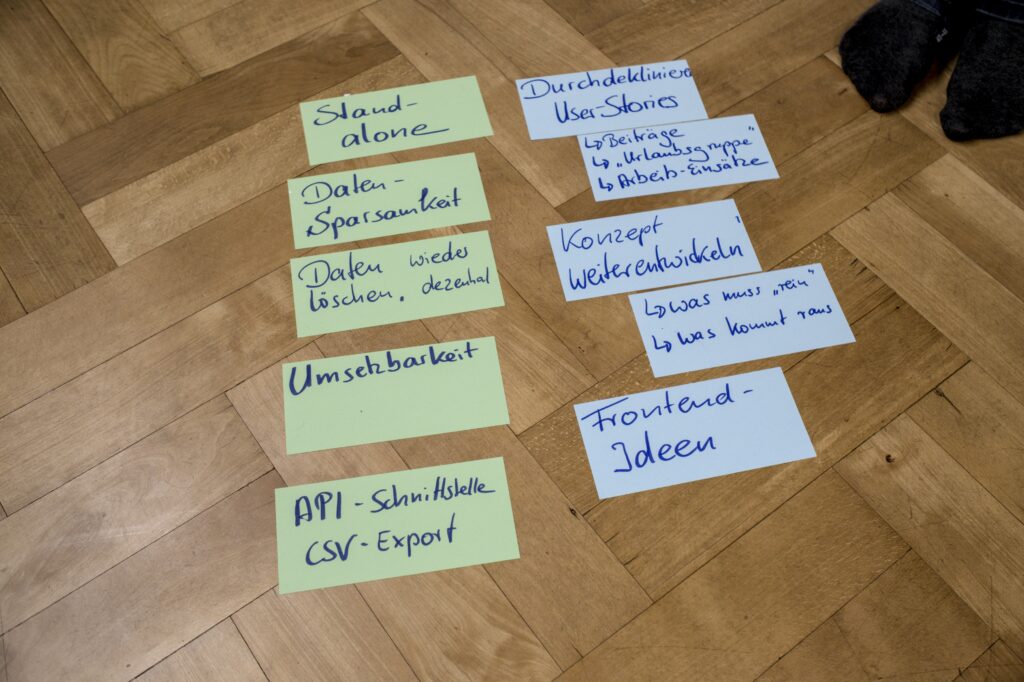 Stand-
alone
Daten-
Sparsamkeit
Daten wieder
löschen. dezenhal
Umsetzbarkeit
API - Schnittstelle
CSV - Export
Durchdeklinieren
User-Stories
↳ Beiträge
↳ „Urlaubsgruppe"
↳ Arbeits-Einsätze
Konzept
weiterentwickeln
↳ was muss „rein"
↳ was kommt raus
Frontend-
Ideen